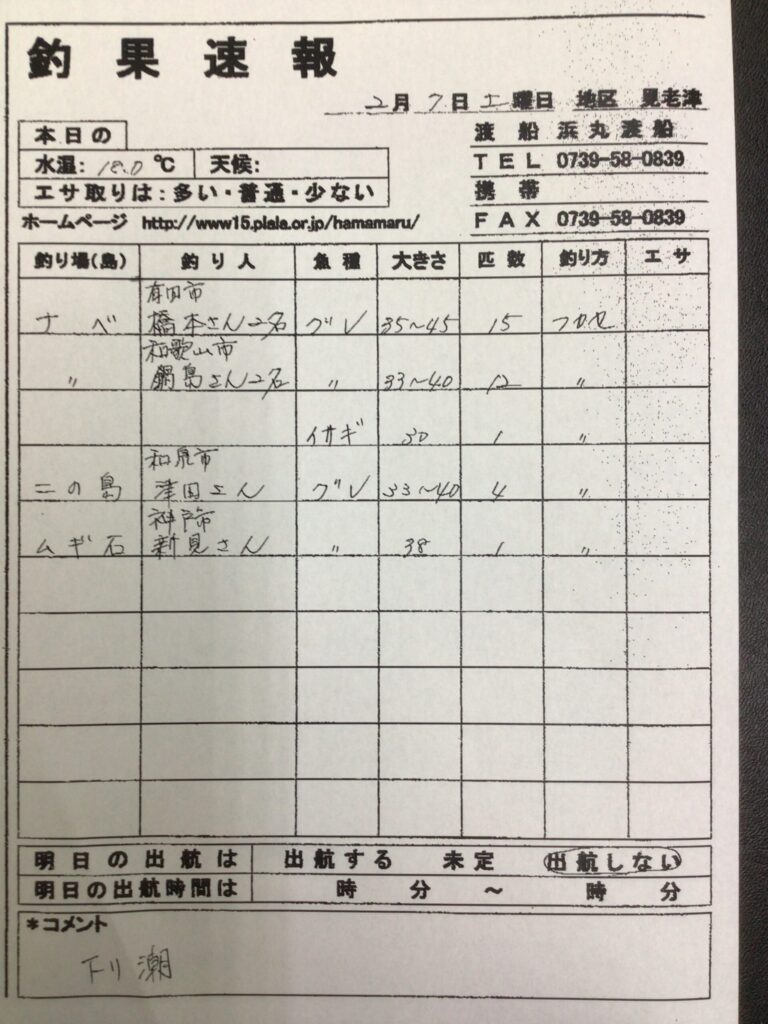 釣果速報
2月7日土曜日 地区 見老津
本日の
渡船 浜丸渡船
水温: 18.0℃ 天候:
TEL 0739-58-0839
エサ取りは:多い・普通・少ない
携帯
ホームページ http://www15.plala.or.jp/hamamaru/
FAX 0739-58-0839
釣り場(島) 釣り人 魚種 大きさ 匹数 釣り方 エサ
有田市
ナベ 橋本さん2名 グレ 35~45 15 フカセ
和歌山市
〃 鍋島さん2名 〃 33~40 12 〃
イサギ 30 1 〃
和泉市
二の島 津田さん グレ 33~40 4 〃
神戸市
ムギ石 新見さん 〃 38 1 〃
明日の出航は 出航する 未定 出航しない
明日の出航時間は 時 分 ~ 時 分
*コメント
下り潮